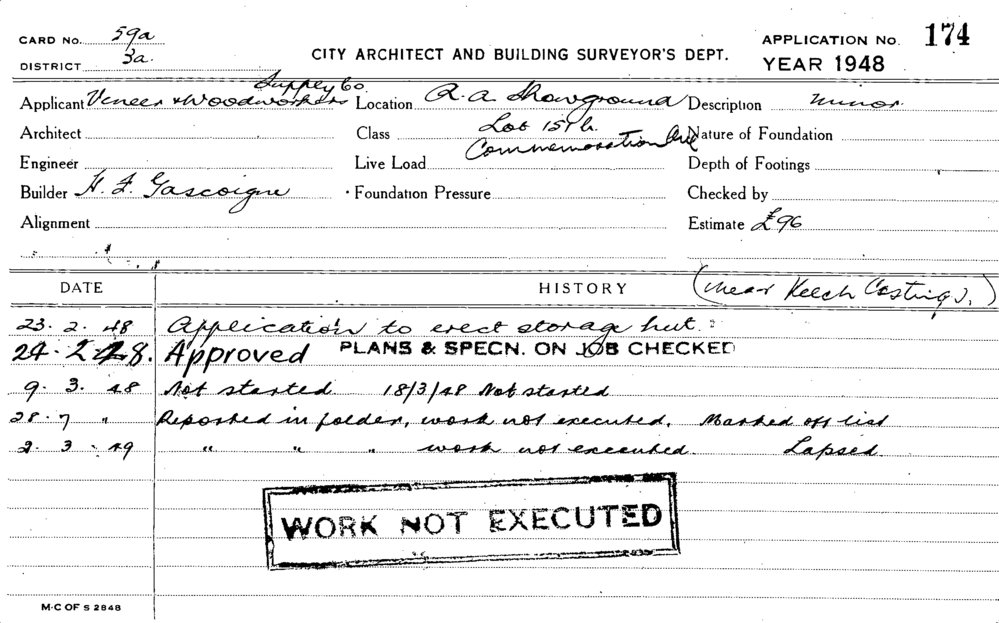 CARD No. 59a
DISTRICT 3a.
CITY ARCHITECT AND BUILDING SURVEYOR'S DEPT.
APPLICATION No. 174
YEAR 1948
Applicant Veneer & Woodworkers Supply Co.
Location R.A. Showground
Description Minor.
Architect
Class Lot 151 b. Commemoration Ave
Nature of Foundation
Engineer
Live Load
Depth of Footings
Builder H. F. Gascoigne
Foundation Pressure
Checked by
Alignment
Estimate £96
DATE HISTORY (near Keech Castings.)
23. 2. 48 Application to erect storage hut.
24.2.48. Approved PLANS & SPECN. ON JOB CHECKED
9. 3. 48 Not started 18/3/48 Not started
28. 7 " Reported in folder, work not executed. Marked off list
2. 3. 49 " " " work not executed. Lapsed.
WORK NOT EXECUTED
M·C OF S 2848